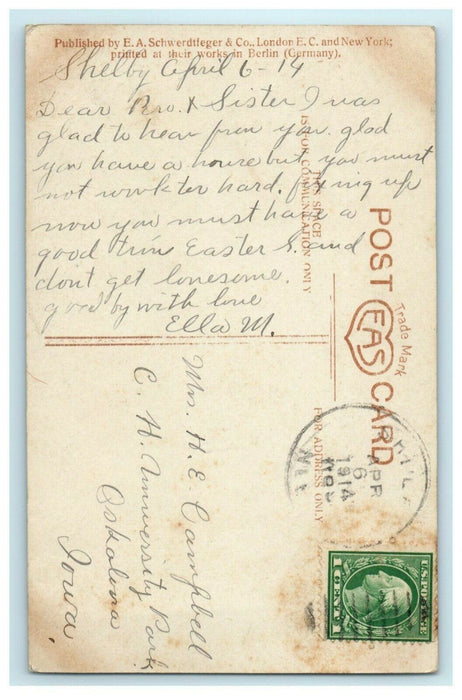 Published by E. A. Schwerdtfeger & Co., London E. C. and New York;
printed at their works in Berlin (Germany).
Shelby April 6-14
Dear Bro. & Sister I was
glad to hear from you. glad
you have a house but you must
not work ter hard. fixing up
now you must have a
good time Easter S. and
dont get lonesome.
good by with love
Ella M.
THIS SPACE
IS FOR COMMUNICATION ONLY
POST CARD
EAS
Trade Mark
FOR ADDRESS ONLY
Mrs. H. E. Campbell
C. H. University Park
Oskaloosa
Iowa.
APR
6
1914
U.S. POSTAGE
1 CENT 1